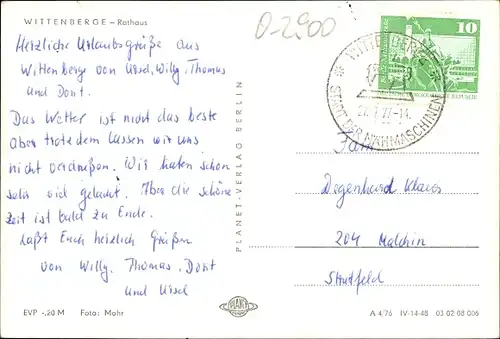 WITTENBERGE – Rathaus
0-2900
Herzliche Urlaubsgrüße aus
Wittenberge von Ursel, Willy, Thomas
und Dont.
Das Wetter ist nicht das beste
aber trotzdem lassen wir uns
nicht verdrießen. Wir haben schon
sehr viel gelacht. Aber die schöne
Zeit ist bald zu Ende.
Laßt Euch herzlich Grüßen
von Willy, Thomas, Dont
und Ursel
EVP -,20 M Foto: Mohr
PLANET-VERLAG BERLIN
PLANET
10
WITTENBERGE
STADT DER NÄHMASCHINEN
Fam
Degenhard Klaus
204 Malchin
A 4/76 IV-14-48 03 02 08 006